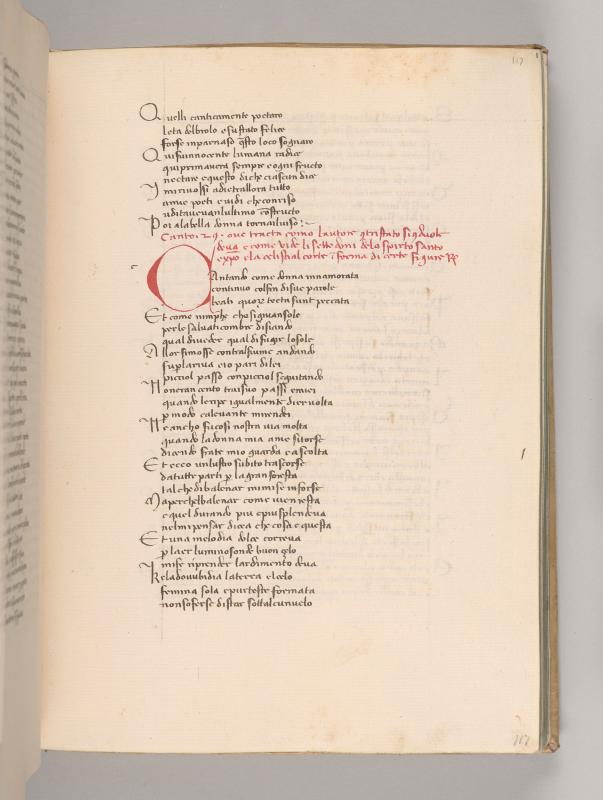 117
Quelli canticamente poetaro
leta delloro esustato felice
forse inparnaso q̃sto loco sognaro
Qui fu innocente lumana radice
qui primavera sempre e ogni fructo
nectare e questo di che ciascun dice
I mi rivolsi adietro allora tutto
amie poeti e vidi che con riso
udito avevan lultimo costructo
Poi a la bella donna tornai l viso
Canto .29. ove tracta como lautore
deva e come vide li septe doni delo spirito santo
expo e la celistial corte ĩ forma di certe figure
Cantando come donna innamorata
continuo col fin di sue parole
beati quorũ tecta sunt peccata
Et come nimphe che si givan sole
per le salvatiche ombre disiando
qual di veder qual di fugir lo sole
Allor si mosse contral fiume andando
su p la riva e io pari di lei
picciol passo con picciol seguitando
Non eran cento tra i suo passi e miei
quando le ripe igualmente dier volta
p modo ca levante mi rendei
Ne ancho fu cosi nostra via molta
quando la donna mia a me si torse
dicendo frate mio guarda e ascolta
Et ecco un lustro subito trascorse
da tutte parti p la gran foresta
tal che di balenar mi mise in forse
Ma perchel balenar come vien resta
e quel durando piu e piu splendeva
nel mi pensar dicea che cosa e questa
Et una melodia dolce correva
p laer luminoso onde buon zelo
mi fe riprender lardimento deva
che la dove ubidia la terra e l celo
femina sola e pur teste formata
non soferse di star sotto alcun velo
117